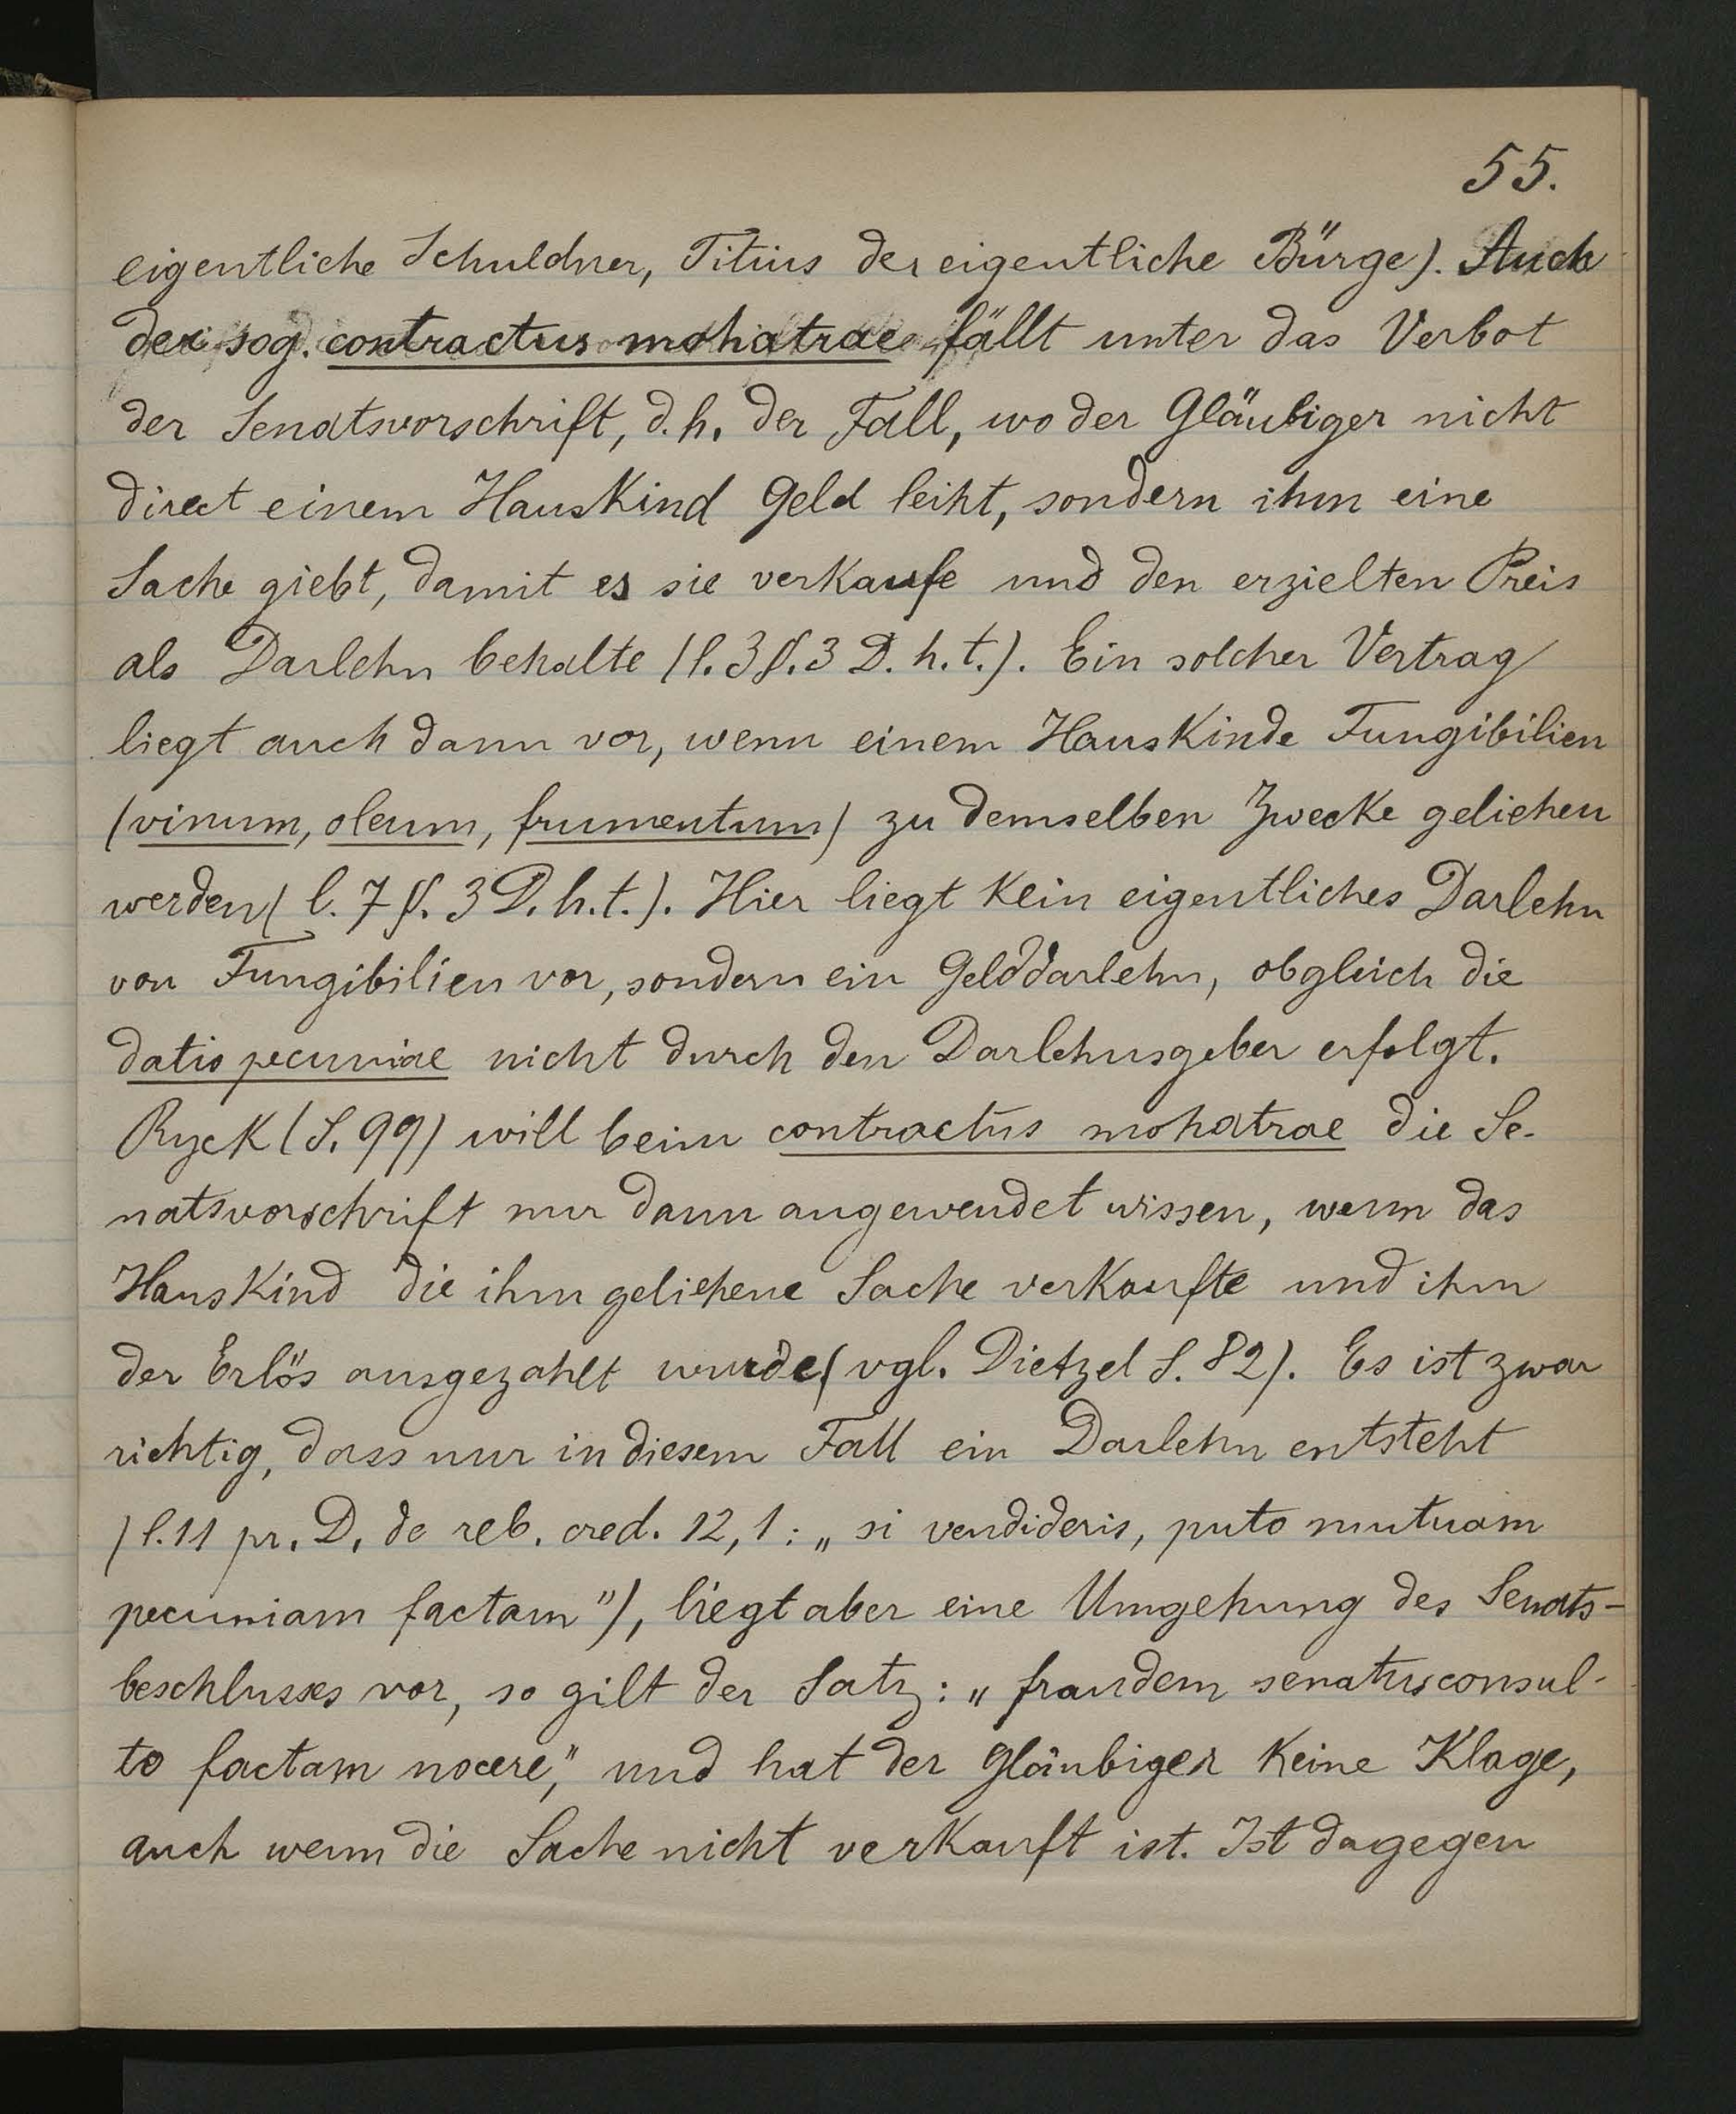 55.
eigentliche Schuldner, Titius der eigentliche Bürge). Auch
der sog. contractus mohatrae fällt unter das Verbot
der Senatsvorschrift, d. h. der Fall, wo der Gläubiger nicht
direct einem Hauskind Geld leiht, sondern ihm eine
Sache giebt, damit es sie verkaufe und den erzielten Preis
als Darlehn behalte (l. 3 §. 3 D. h. t.). Ein solcher Vertrag
liegt auch dann vor, wenn einem Hauskinde Fungibilien
(vinum, oleum, frumentum) zu demselben Zwecke geliehen
werden (l. 7 §. 3 D. h. t.). Hier liegt kein eigentliches Darlehn
von Fungibilien vor, sondern ein Gelddarlehn, obgleich die
datio pecuniae nicht durch den Darlehnsgeber erfolgt.
Ryck (S. 99) will beim contractus mohatrae die Se-
natsvorschrift nur dann angewendet wissen, wenn das
Hauskind die ihm geliehene Sache verkaufte und ihm
der Erlös ausgezahlt wurde (vgl. Dietzel S. 82). Es ist zwar
richtig, dass nur in diesem Fall ein Darlehn entsteht
(l. 11 pr. D. de reb. cred. 12, 1: „si vendideris, puto mutuam
pecuniam factam"), liegt aber eine Umgehung des Senats-
beschlusses vor, so gilt der Satz: „fraudem senatusconsul-
to factam nocere," und hat der Gläubiger keine Klage,
auch wenn die Sache nicht verkauft ist. Ist dagegen